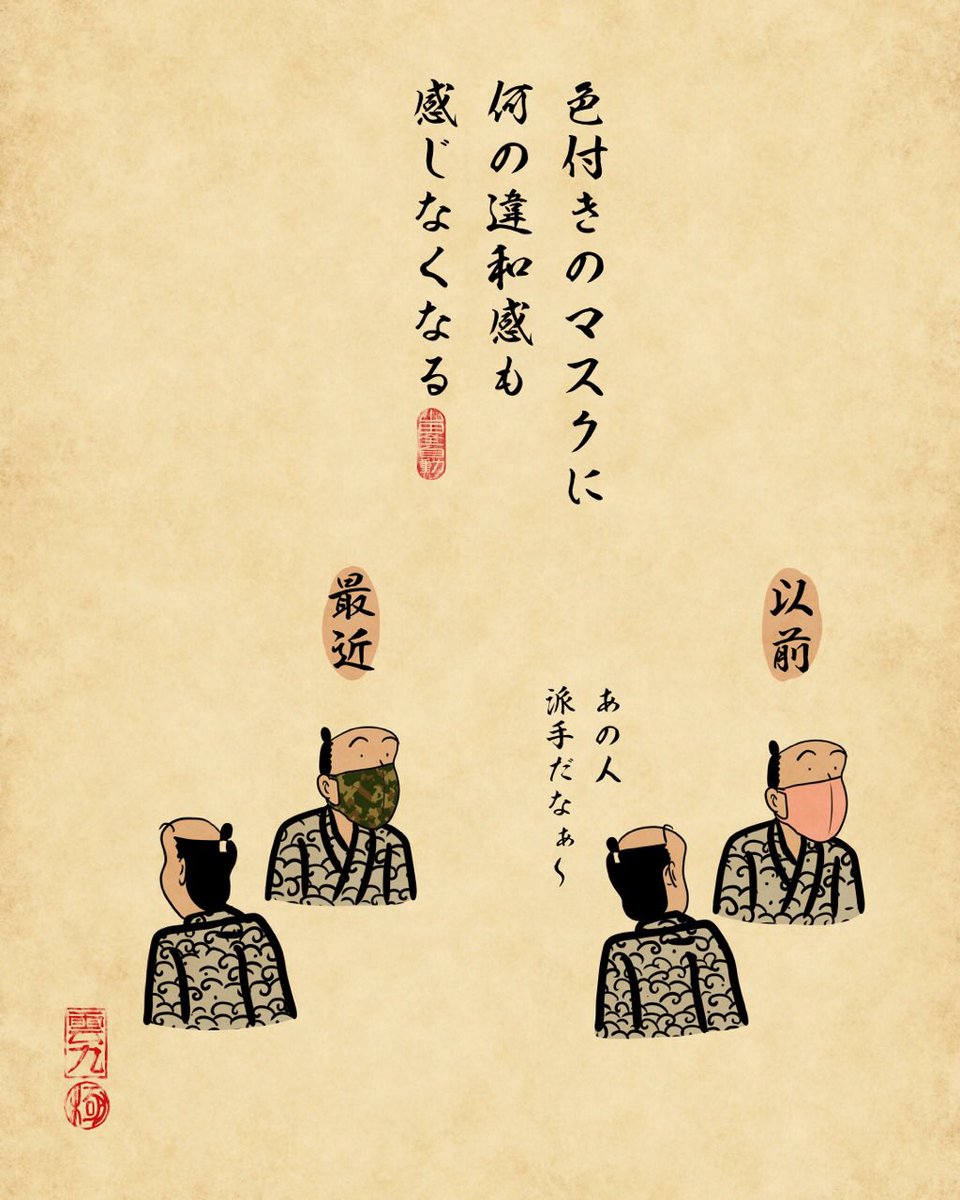 色付きのマスクに
何の違和感も
感じなくなる
以前
あの人
派手だなぁ〜
最近
雲
九
極